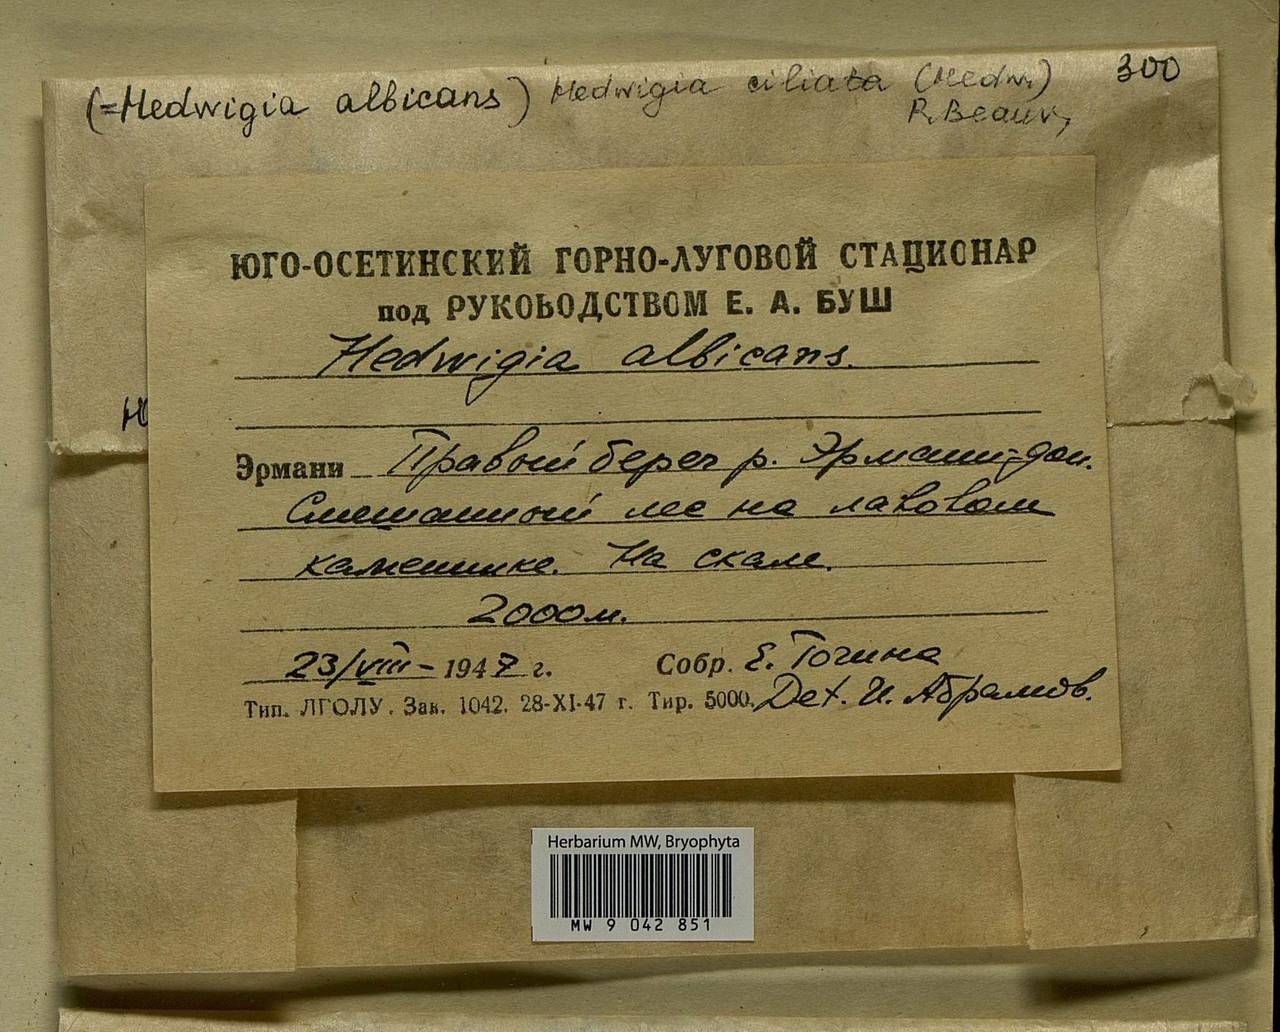 (=Hedwigia albicans) Hedwigia ciliata (Hedw.) 300
P. Beauv.
ЮГО-ОСЕТИНСКИЙ ГОРНО-ЛУГОВОЙ СТАЦИОНАР
под РУКОВОДСТВОМ Е. А. БУШ
Hedwigia albicans.
Эрмани Правый берег р. Эрмани-дон.
Смешанный лес на лавовом
каменнике. На скале.
2000 м.
23/VIII – 1947 г. Собр. Е. Точина
Тип. ЛГОЛУ. Зак. 1042. 28-XI-47 г. Тир. 5000. Det. И. Абрамов.
Herbarium MW, Bryophyta
MW 9 042 851